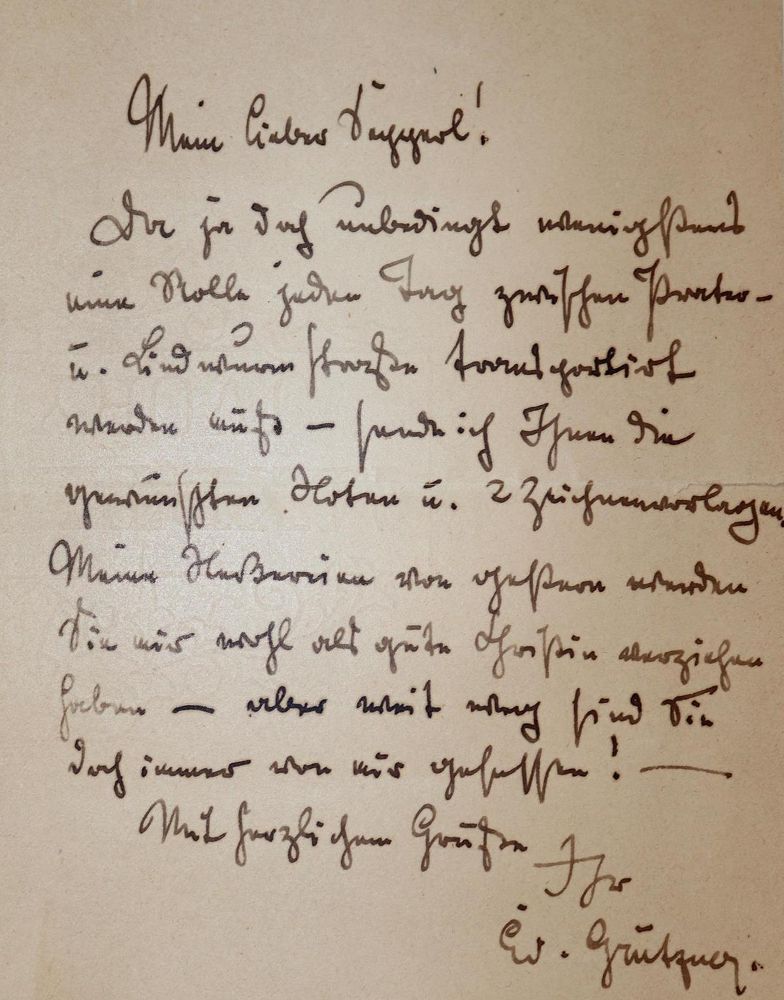 Mein lieber Sepperl!
Da ja doch unbedingt wenigstens
eine Rolle jeden Tag zwischen Prater-
u. Lindwurmstraße transportirt
werden muß — sende ich Ihnen die
gewünschten Noten u. 2 Zeichnenvorlagen.
Meine Neckereien von gestern werden
Sie mir wohl als gute Christin verziehen
haben — aber weit weg sind Sie
doch immer von mir gesessen! —
Mit herzlichem Gruße
Ihr
Ed. Grützner.